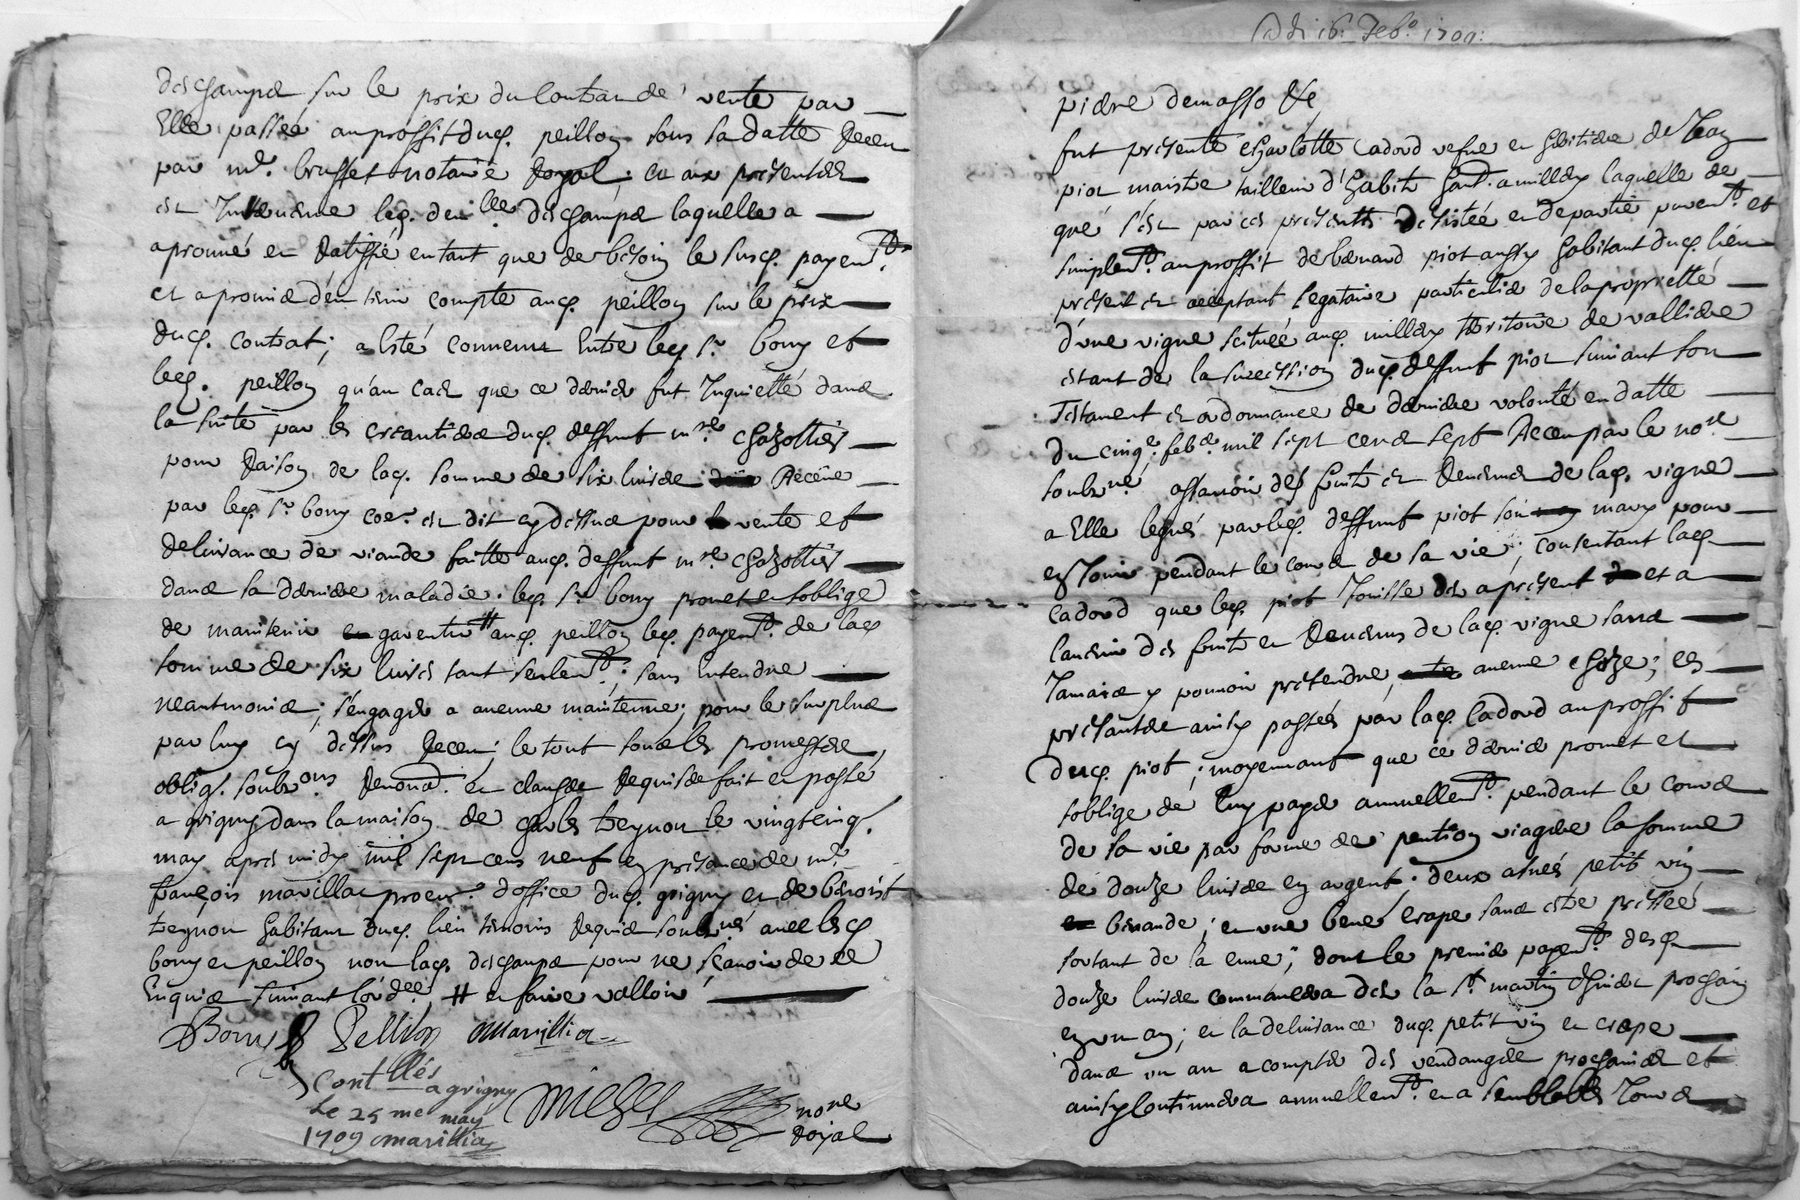 deschampz sur le prix du Contrat de vente par
Elle passée au proffit dud. peillon sous sa datte Receu
par me. brusset notaire Royal; ce aux presentes
est Intervenue lad. demlle deschampz laquelle a
aprouvé et Ratiffié en tant que de bésoin le susd. payemt.
et a promis d'en tenir compte aud. peillon sur le prix
dud. contrat; a Esté convenu Entre led. sr. bory et
led. peillon qu'au cas que ce dernier fut Inquietté dans
la suitte par les creantiers dud. deffunt mre. chazottier
pour Raison de lad. somme de six livres Receüe
par led. sr. bory coe. est dit cy dessus pour vente et
delivrance de viande faitte aud. deffunt mre. chazottier
dans sa derniere maladie. led. sr. bory promet et soblige
de maintenir # aud. peillon led. payemt. de lad.
somme de six livres tant seulemt.; sans Entendre
neantmoins; s'engager a aucune maintenue; pour le surplus
par luy cy dessus Receu; le tout sous les promesses
oblig. soubz.ons Renond. et clauses Requises fait et passé
a grigny dans la maison de charles treynou le vingtcinq.
may apres midy mil sept cens neuf en présance de mr.
françois marillac procur. d'office dud. grigny et de benoist
treynou habitant dud. lieu temoins Requis soubznés avec lesd.
bory et peillon non lad. deschampz pour ne sçavoir de ce
Enquise suivant l'ordce. # et faire valloir
Bory Peillon Marillia
Contllés a grigny
Le 25 me may
1709 Marillia
nore
Royal
16: Feb.o 1709:
pierre demasso &c
fut présente charlotte Cadord vefve et héritiere de Jean
piot maistre tailleur d'habit hant. a millery laquelle de
gré s'est par ces présentes désistée et departie puremt. et
simplemt. au proffit de bernard piot aussy habitant dud. lieu
présent et acceptant légataire particulier de la proprietté
d'une vigne scituée aud. millery territoire de vallière
estant de la succession dud. deffunt piot suivant son
Testament et ordonnance de derniere volonté en datte
du cinqe. febr. mil sept cens sept Receu par le nore.
soubzné. assavoir des fruits et Revenus de lad. vigne
a Elle legués par led. deffunt piot son mary pour
en Jouir pendant le cours de sa vie; consentant lad.
Cadord que led. piot Jouisse des a présent et a
l'advenir des fruits et Revenus de lad. vigne sans
Jamais y pouvoir prétendre, aucune choze; ces
présantes ainsy passées par lad. Cadord au proffit
dud. piot; moyennant que ce dernier promet et
soblige de luy payer annuellemt. pendant le cours
de sa vie par forme de pention viagère la somme
de douze livres en argent; deux asnés petit vin
buvande; et une bene crape sans estre pressée
sortant de la cuve; dont le premier payemt. desd.
douze livres commancera des la st. martin d'hiver prochain
en un an; et la delivrance dud. petit vin et crape
dans un an a compter des vendanges prochaines et
ainsy Continuera annuellemt. et a semblables Jours